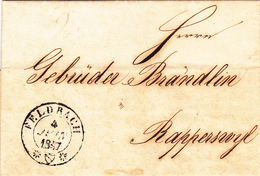 Herrn
Gebrüder Brändlin
Rapperswyl
FELDBACH
4
1847